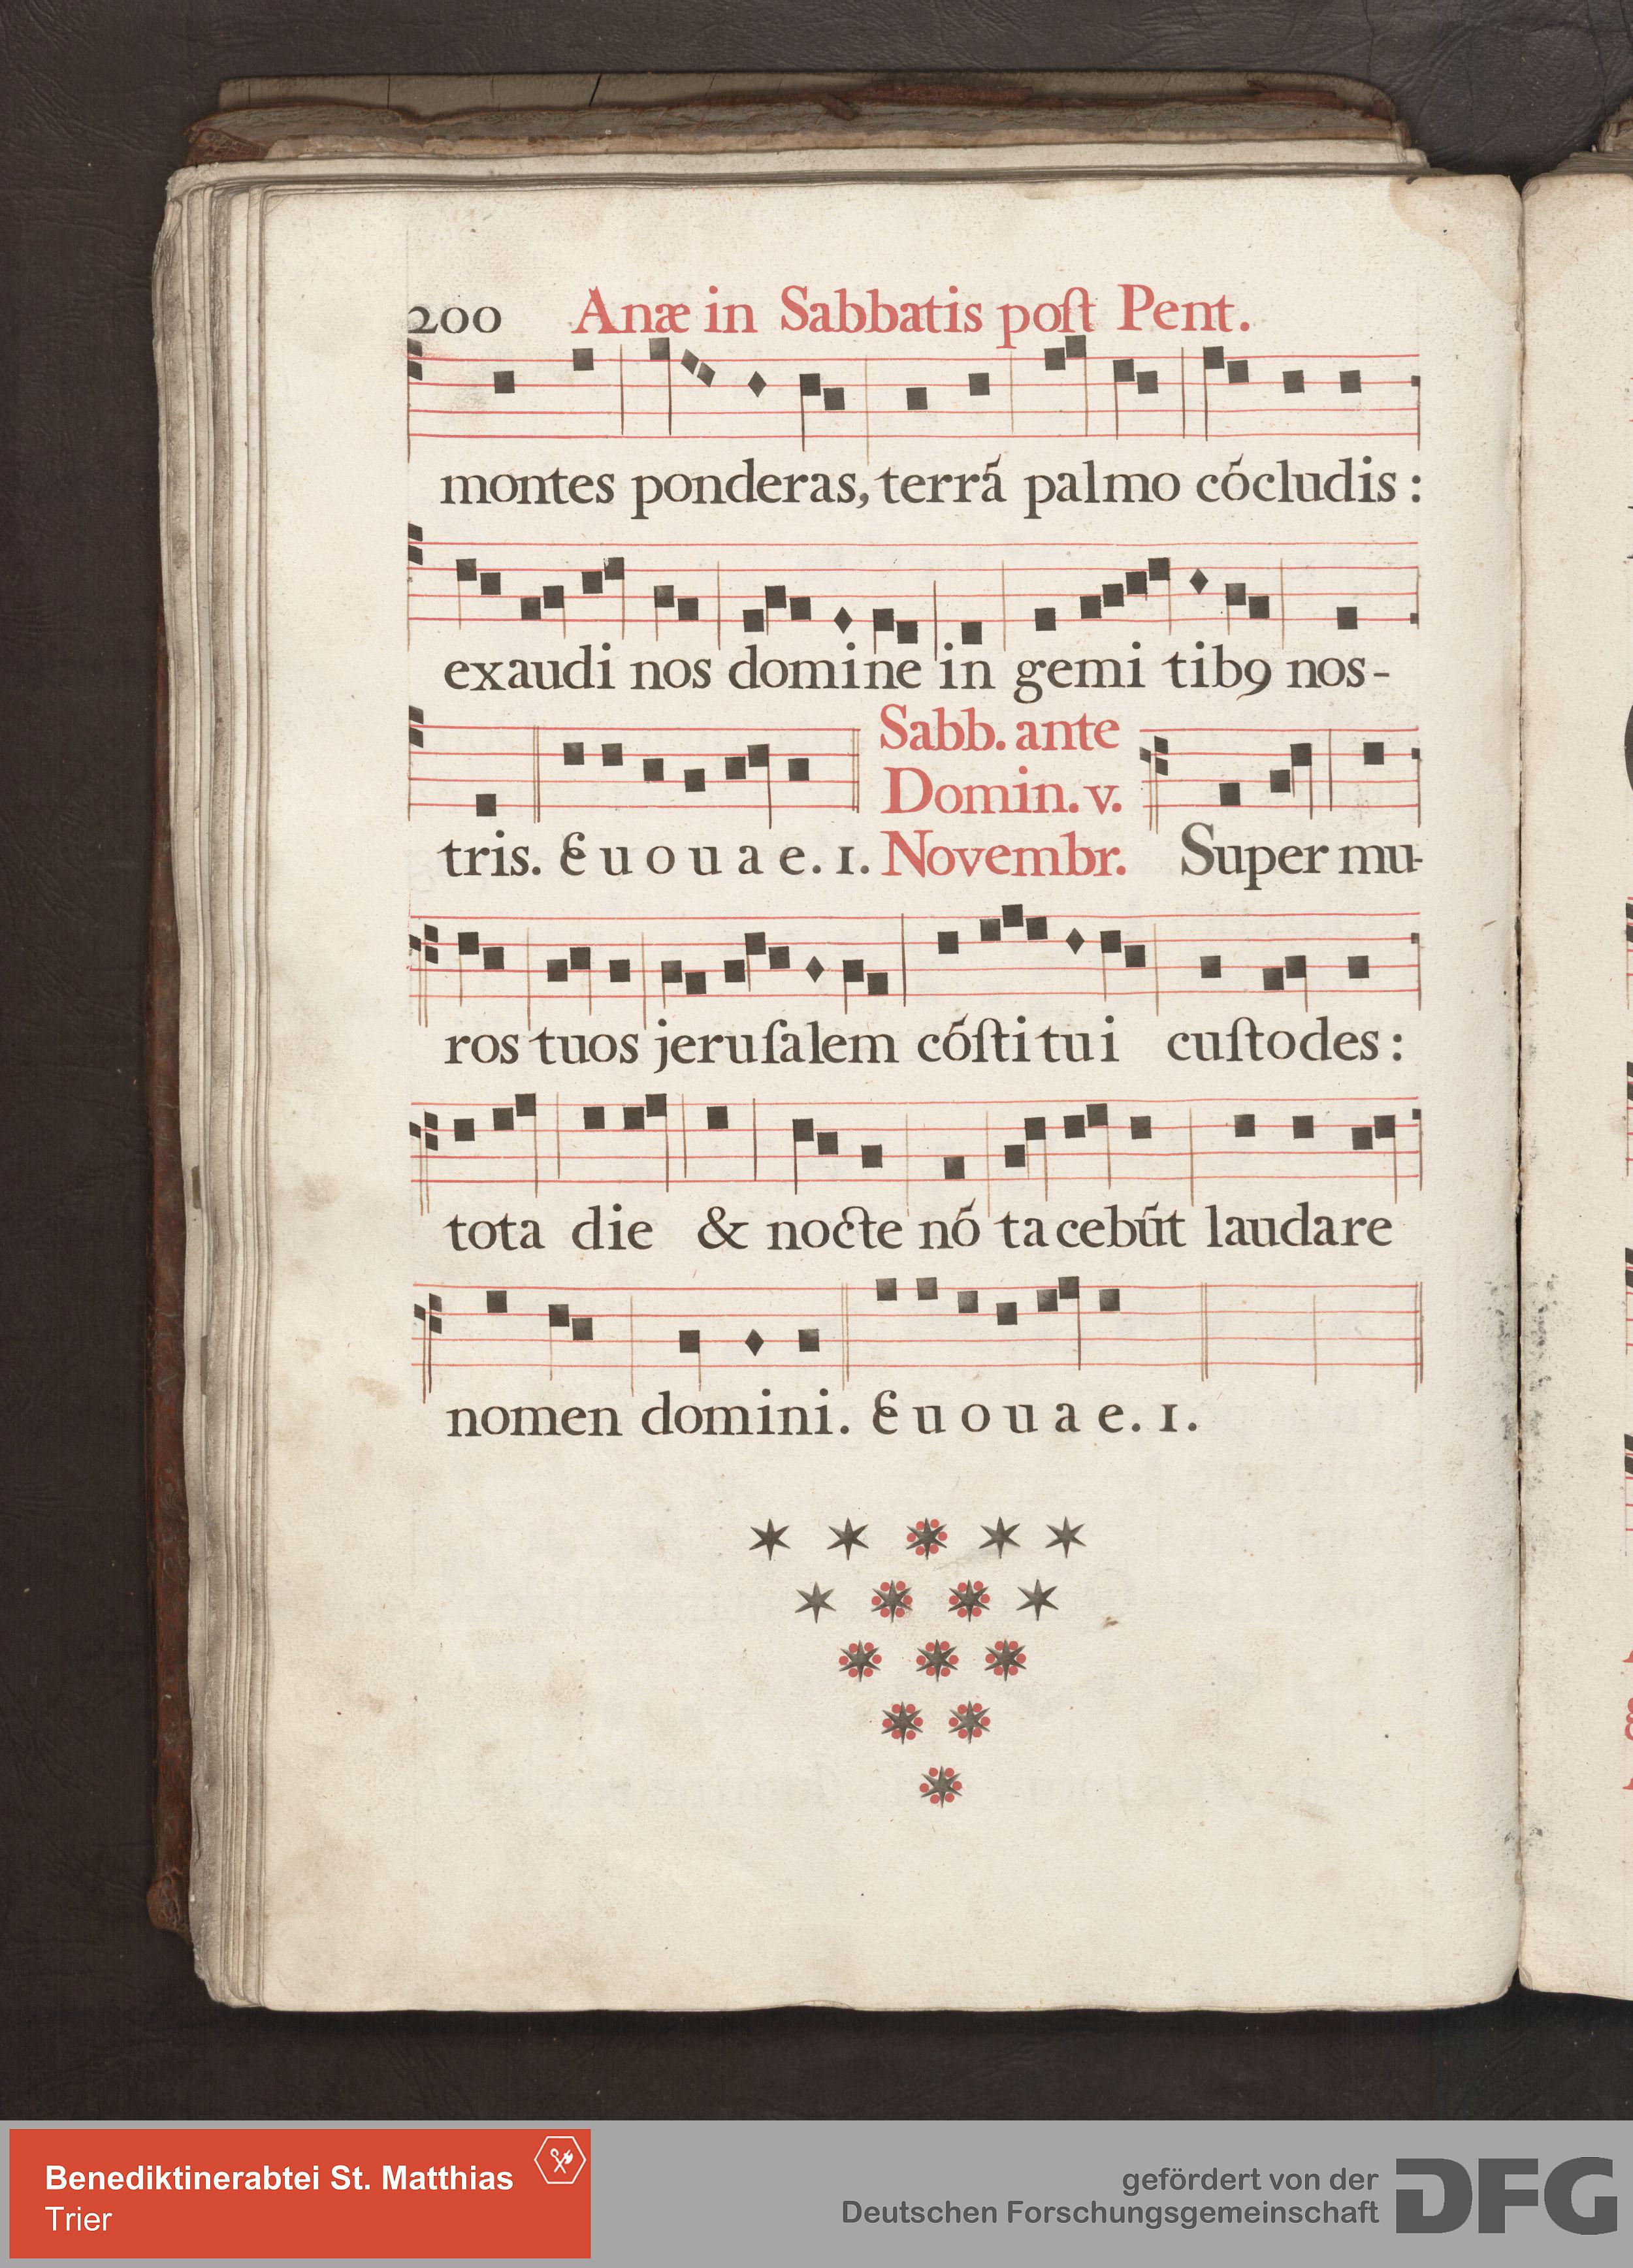 200 Anæ in Sabbatis poſt Pent.
montes ponderas, terrá palmo cócludis :
exaudi nos domine in gemi tibꝯ nos-
Sabb. ante
Domin. v.
tris. Euouae. 1. Novembr. Super mu-
ros tuos jeruſalem cóſtitui cuſtodes :
tota die & nocte nó tacebũt laudare
nomen domini. Euouae. 1.
Benediktinerabtei St. Matthias
Trier
gefördert von der
Deutschen Forschungsgemeinschaft
DFG